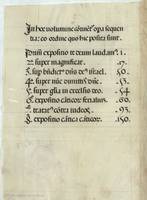 In hoc volumine continent̃ opa sequen
tia: eo ordine quo hic posita sunt.
expositio te deum laudam⁹. 1.
super magnificat. 17.
sup bñdict⁹ dñs de⁹ israel. 50.
super nūc dimittis 53.
super glia in excelsis deo. 54
expositio cāticor feriatus. 60.
tractat⁹ cōtra iudeos. 93.
expositio cātica cāticor. 150.